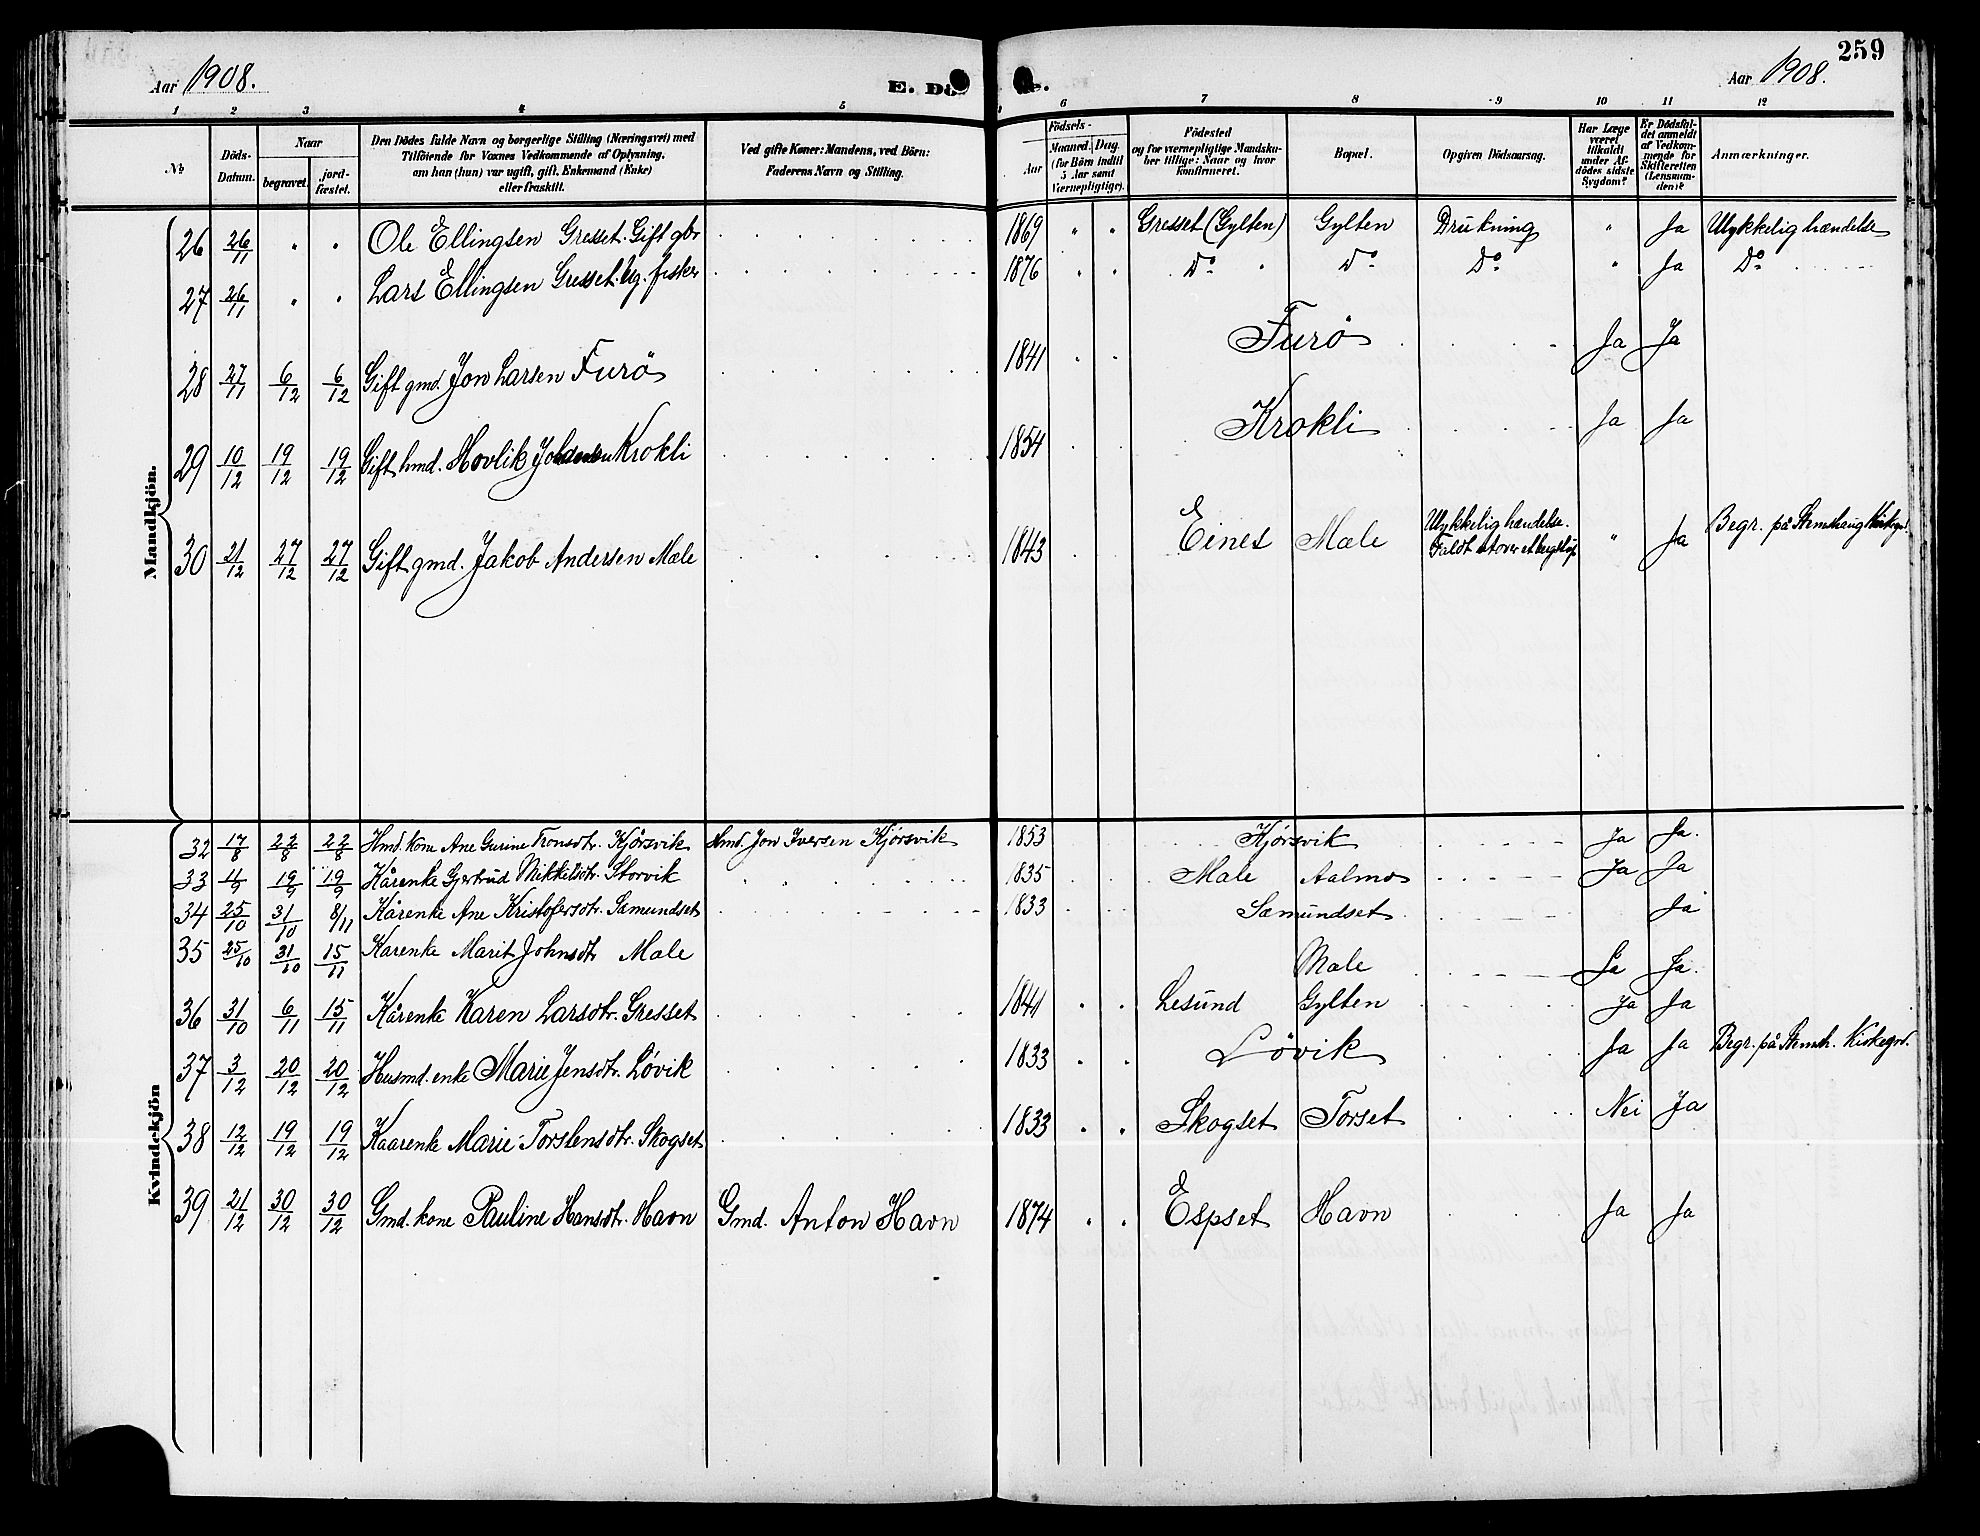 259
Aar 1908. E. Dö Aar 1908.
1 2 3 4 5 6 7 8 9 10 11 12
№ Döds-Datum. Naar begravet. jord-fæstet. Den Dödes fulde Navn og borgerlige Stilling (Næringsvei) med Tilföiende for Voxnes Vedkommende af Oplysning, om han (hun) var ugift, gift, Enkemand (Enke) eller fraskilt. Ved gifte Koner: Mandens, ved Börn: Faderens Navn og Stilling. Födsels- Aar Maaned. Dag. (for Börn indtil 5 Aar samt Værnepligtige). Födested og for værnepligtige Mandsku-ber tillige: Naar og hvor konfirmeret. Bopæl. Opgiven Dödsaarsag. Har Læge været tilkaldt under Af-dödes sidste Sygdom? Er Dödsfal-det anmeldt af Vedkom-mende for Skifteretten (Lensman-den)? Anmærkninger.
Mandkjön.
26 26/11 " " Ole Ellingsen Gresset. Gift gbr 1869 " " Gresset (Gylten) Gylten Drukning " Ja Ulykkelig hændelse
27 26/11 " " Lars Ellingsen Gresset. Ug. fisker 1876 " " Do " Do Do " Ja Do
28 27/11 6/12 6/12 Gift gmd. Jon Larsen Furö 1841 Furö Ja Ja
29 10/12 19/12 19/12 Gift hmd. Hovlik Krokli 1854 Krokli Ja Ja
30 21/12 27/12 27/12 Gift gmd. Jakob Andersen Mæle 1843 Eines Male Ulykkelig hændelse. Faldt utover et " Ja Begr. på Stemshaug
Kvindekjön
32 17/8 22/8 22/8 Hmd. kone Ane Gurine Tronsdtr. Kjörsvik Hmd. Jon Iversen Kjörsvik 1853 Kjörsvik Ja Ja.
33 19/9 19/9 Kårenke Gjertrud Mikkelsdtr. Storvik 1835 Male Aalmo Ja Ja
34 25/10 31/10 8/11 Kårenke Ane Kristofersdtr. Sæmundset 1833 Sæmundset Ja
35 25/10 31/10 15/11 Karenke Marit Johnsdtr Male Male Ja Ja.
36 31/10 6/11 15/11 Kårenke Karen Larsdtr. Gresset 1841 Lesund Gylten Ja Ja
37 3/12 20/12 20/12 Husmd. enke Marie Jensdtr. Lövik 1833 Lövik Ja Ja Begr. på Stemsh. Kirkegrd.
38 12/12 19/12 19/12 Kaarenke Marie Torstensdtr. Skogset 1833 Skogset Torset Nei Ja
39 21/12 30/12 30/12 Gmd. kone Pauline Hansdtr. Havn Gmd. Anton Havn 1874 Espset Havn Ja Ja